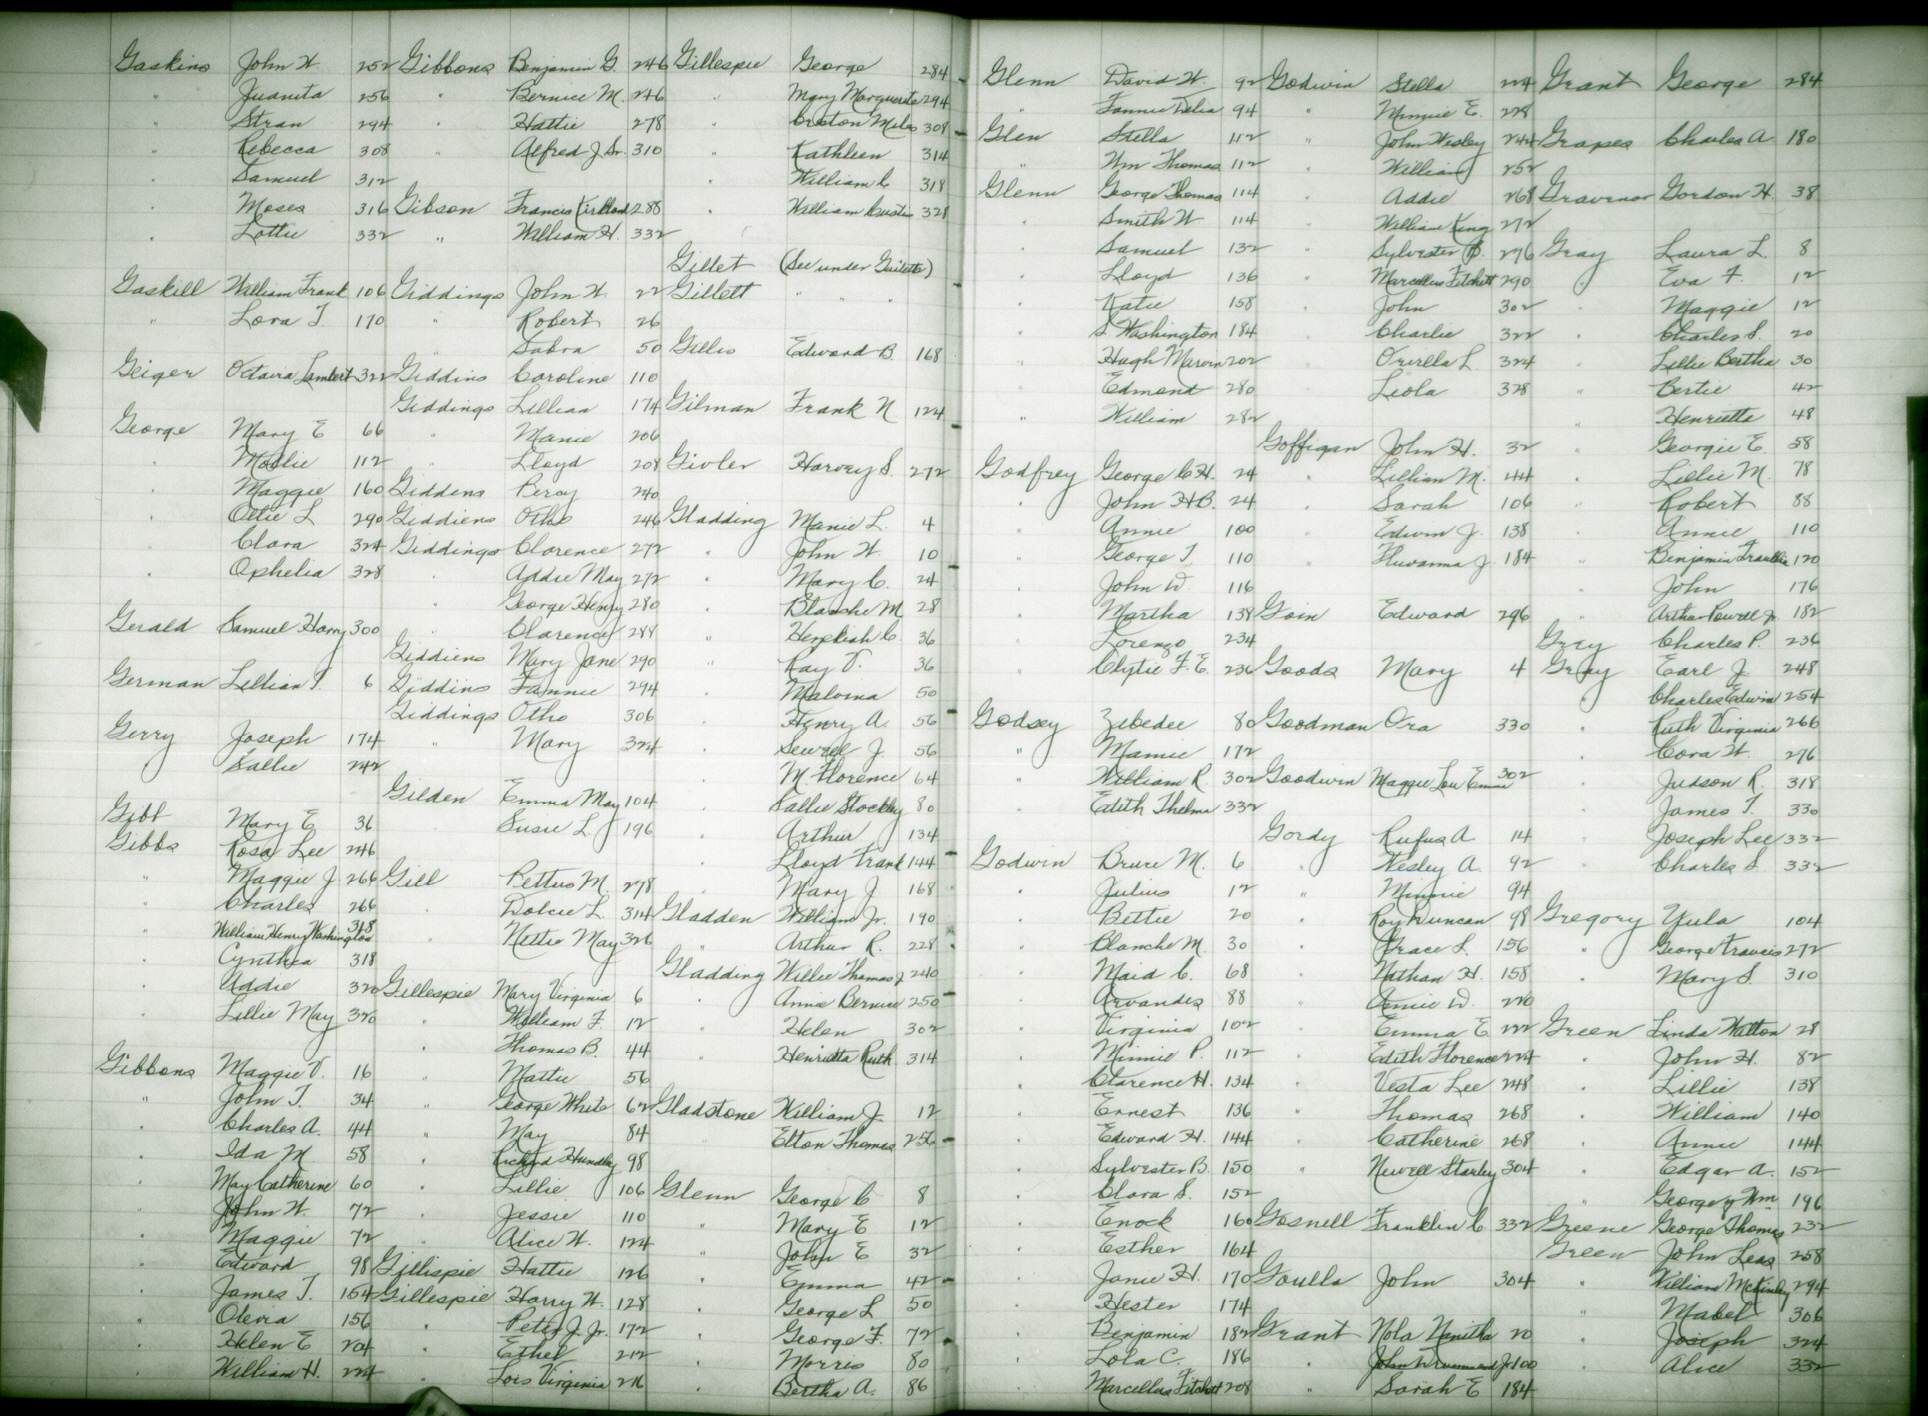 Gaskins John W. 252
" Juanita 256
" Stran 294
" Rebecca 308
" Samuel 312
" Moses 316
" Lottie 332
Gaskill William Frank 106
" Lora T. 170
Geiger Octavia Lambert 322
George Mary E 66
" Mollie 112
" Maggie 160
" Ollie L 290
" Clara 324
" Ophelia 328
Gerald Samuel Harry 300
German Lillian T. 6
Gerry Joseph 174
" Sallie 242
Gibb Mary E 36
Gibbs Rosa Lee 246
" Maggie J 266
" Charles 266
" William Henry Washington 318
" Cynthia 318
" Addie 320
" Lillie May 320
Gibbons Maggie V. 16
" John T. 34
" Charles A. 44
" Ida M 58
" May Catherine 60
" John W. 72
" Maggie 72
" Edward 98
" James T. 154
" Olevia 156
" Helen E 204
" William H. 224
Gibbons Benjamin G. 246
" Bernice M. 246
" Hattie 278
" Alfred J. Sr. 310
Gibson Francis Kirkland 288
" William H. 332
Giddings John W 22
" Robert 26
" Sabra 50
Giddins Caroline 110
Giddings Lillian 174
" Manie 206
" Lloyd 208
Giddens Percy 240
Giddiens Otho 246
Giddings Clarence 272
" Addie May 272
" George Henry 280
" Clarence 288
Giddiens Mary Jane 290
Giddins Fannie 294
Giddings Otho 306
" Mary 324
Gilden Emma May 104
" Susie L. 196
Gill Pettus M. 278
" Dolcie L. 314
" Nettie May 326
Gillespie Mary Virginia 6
" William F. 12
" Thomas B. 44
" Mattie 56
" George White 62
" May 84
" Richard Hundley 98
" Lillie 106
" Jessie 110
" Alice W. 124
Gillispie Hattie 126
Gillespie Harry W. 128
" Peter J. Jr. 172
" Ethel 212
" Lois Virginia 216
Gillespie George 284
" Mary Marguerite 294
" Creston Miles 308
" Kathleen 314
" William C 318
" William Custis 328
Gillet (See under Guilette)
Gillett " " "
Gillis Edward B. 168
Gilman Frank N. 124
Givler Harvey S. 272
Gladding Manie L. 4
" John W. 10
" Mary C. 24
" Blanche M 28
" Hezekiah C. 36
" Ray V. 36
" Maloma 50
" Henry A. 56
" Sewell J. 56
" M Florence 64
" Sallie Stockley 80
" Arthur 134
" Lloyd Frank 144
" Mary J 168
Gladden William Jr. 190
" Arthur R. 228
Gladding Willie Thomas J 240
" Annie Bernice 250
" Helen 302
" Henrietta Ruth 314
Gladstone William J 12
" Elton Thomas 256
Glenn George C 8
" Mary E 12
" John E 32
" Emma 42
" George L 50
" George F. 72
" Morris 80
" Bertha A. 86
Glenn David W. 92
" Fannie Delia 94
Glen Stella 112
" Wm Thomas 112
Glenn George Thomas 114
" Smith W 114
" Samuel 132
" Lloyd 136
" Katie 158
" S. Washington 184
" Hugh Marvin 202
" Edmond 280
" William 282
Godfrey George C.H. 24
" John H.B. 24
" Annie 100
" George T 110
" John W 116
" Martha 138
" Lorenzo 234
" Clytie F. E. 236
Godsey Zebedee 80
" Mamie 172
" William R. 302
" Edith Thelma 332
Godwin Bruce M. 6
" Julius 12
" Bettie 20
" Blanche M. 30
" Maid C. 68
" Arvandes 88
" Virginia 102
" Minnie P. 112
" Clarence H. 134
" Ernest 136
" Edward H. 144
" Sylvester B. 150
" Clara S. 152
" Enock 160
" Esther 164
" Janie H. 170
" Hester 174
" Benjamin 182
" Lola C. 186
" Marcellus Fitchett 208
Godwin Stella 224
" Minnie E. 228
" John Wesley 244
" William 252
" Addie 268
" William King 272
" Sylvester B. 276
" Marcellus Fitchett 290
" John 302
" Charlie 322
" Orvella L 324
" Leola 328
Goffigan John H. 32
" Lillian M. 44
" Sarah 106
" Edwin J. 138
" Fluvanna J. 184
Goin Edward 296
Goods Mary 4
Goodman Ora 330
Goodwin Maggie Lou Emma 302
Gordy Rufus A 14
" Wesley A. 92
" Minnie 94
" Roy Duncan 98
" Grace L. 156
" Nathan H. 158
" Annie W. 220
" Emma E. 222
" Edith Florence 224
" Vesta Lee 248
" Thomas 268
" Catherine 268
" Newell Starley 304
Gosnell Franklin C. 332
Goulla John 304
Grant Nola Nanitha 20
" John Drummond Jr 100
" Sarah E 184
Grant George 284
Grapes Charles A. 180
Gravenor Gordon H. 38
Gray Laura L. 8
" Eva F. 12
" Maggie 12
" Charles S. 20
" Lillie Bertha 30
" Bertie 42
" Henrietta 48
" Georgie E. 58
" Lillie M. 78
" Robert 88
" Annie 110
" Benjamin Franklin 120
" John 176
" Arthur Powell Jr. 182
Grey Charles P. 236
Gray Earl J 248
" Charles Edwin 254
" Ruth Virginia 266
" Cora W. 276
" Judson R. 318
" James T. 330
" Joseph Lee 332
" Charles S. 332
Gregory Yula 104
" George Francis 272
" Mary S. 310
Green Linda Watson 28
" John H. 82
" Lillie 138
" William 140
" Annie 144
" Edgar A. 152
" George of Wm. 196
Greene George Thomas 232
Green John Leas 258
" William McKinley 294
" Mabel 306
" Joseph 324
" Alice 332